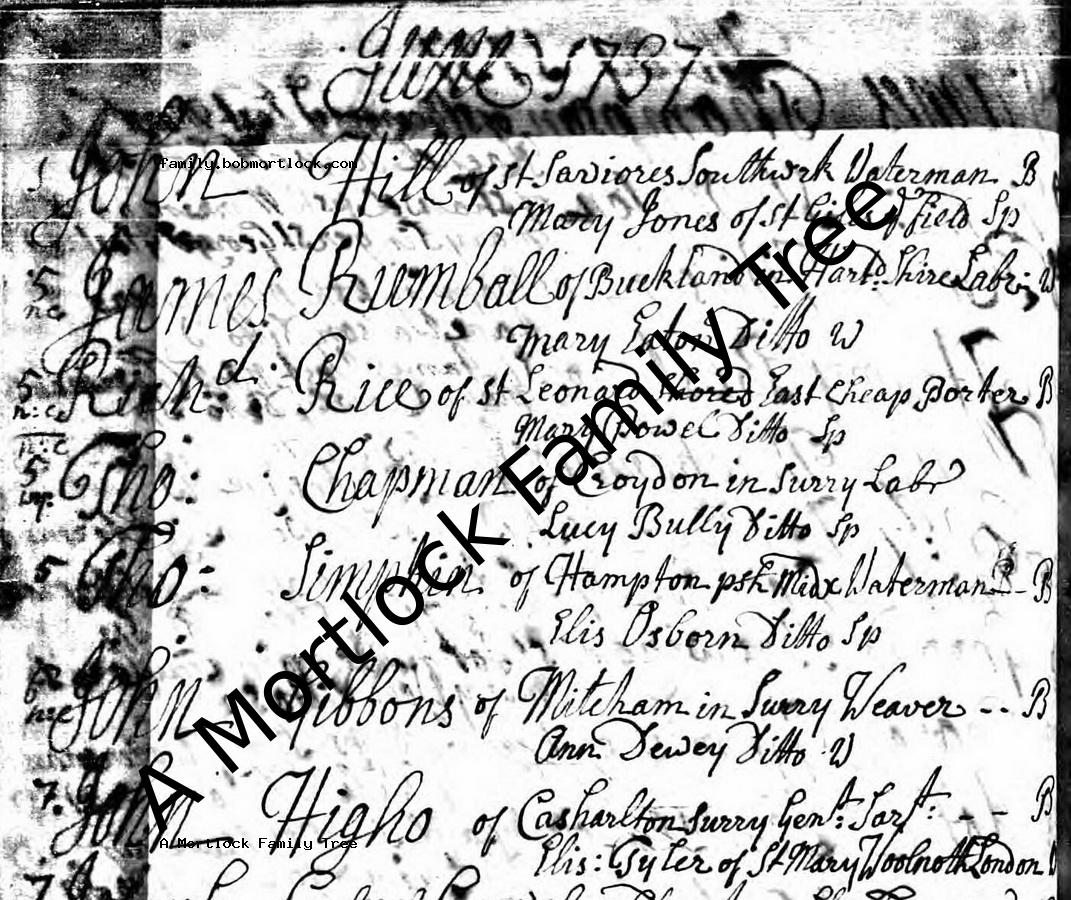 June 1737
family.bobmortlock.com
1 John Hill of St Saviores Southwrk Waterman B
Mary Jones of St Giles Field Sp
5 James Rumball of Buckland in Hartd. Shire Labr: W
Mary Eaton Ditto W
5 Richd. Rice of St Leonard Shored East Cheap Porter B
n:c. Mary Powel Ditto Sp
5 Tho: Chapman of Croydon in Surry Labr
Lucy Bully Ditto Sp
5 Tho: Simpkin of Hampton psh Midx Waterman - B
Elis Osborn Ditto Sp
John Gibbons of Mitcham in Surry Weaver - - B
Ann Dewey Ditto W
7. John Higho of Casharlton Surry Gent: Sart: - - B
Elis: Tyler of St Mary Woolnoth London
7
A Mortlock Family Tree
A Mortlock Family Tree